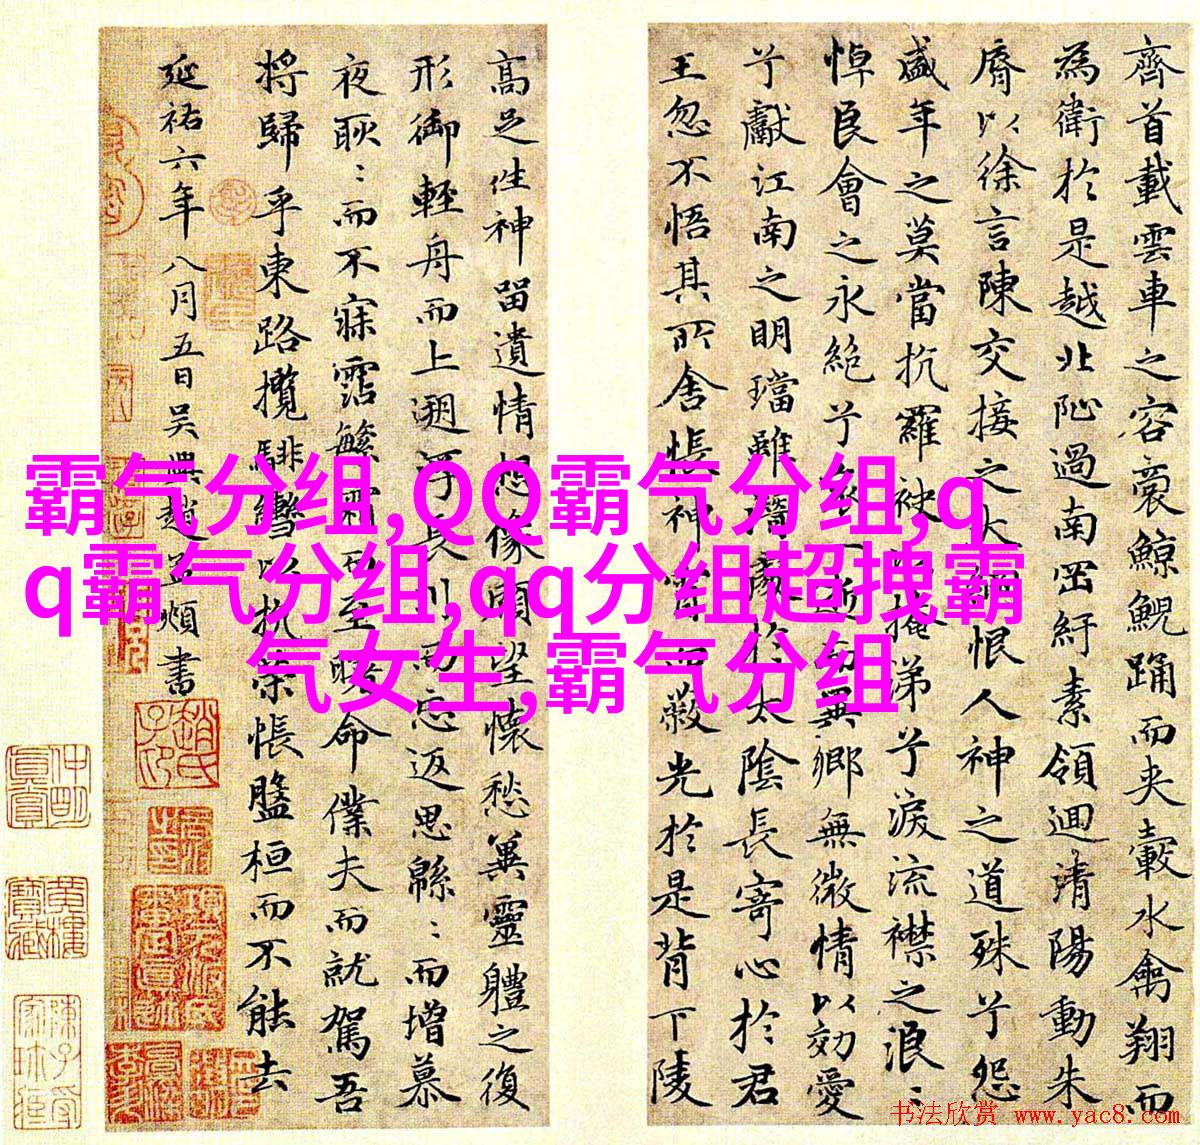 齊首載雲車之容裔鯨鯢踊而夾轂水禽翔而
為衛於是越北沚過南岡紆素領迴清陽動朱
脣以徐言陳交接之大綱恨人神之道殊兮怨
盛年之莫當抗羅袂以掩涕兮淚流襟之浪〻
悼良會之永絕兮哀一逝而異鄉無微情以效愛
兮獻江南之明璫雖潛處於太陰長寄心於君
王忽不悟其所舍悵神宵而蔽光於是背下陵
高足往神留遺情想像顧望懷愁冀靈體之復
形御輕舟而上遡浮長川而忘返思緜〻而增慕
夜耿〻而不寐霑繁霜而至曙命僕夫而就駕吾
將歸乎東路攬騑轡以抗策悵盤桓而不能去
延祐六年八月五日吳興趙孟頫書
霸气分组,QQ霸气分组,q
q霸气分组,qq分组超拽霸
气女生,霸气分组
书法欣赏 www.yac8.com